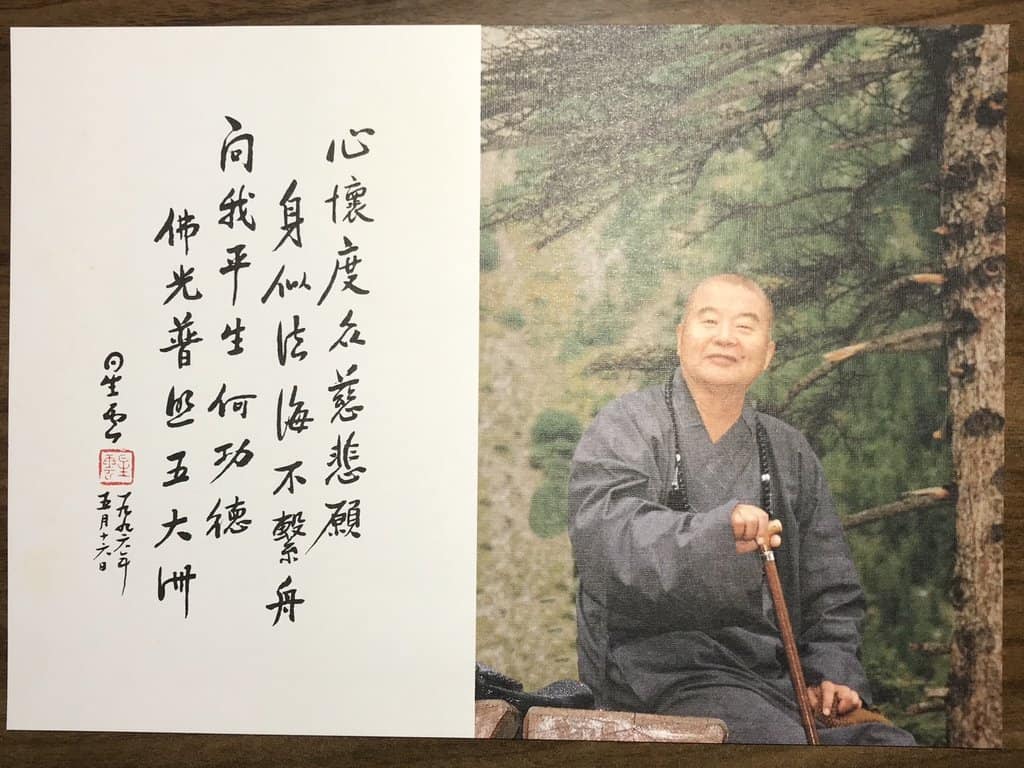 心懷度众慈悲願
身似法海不繫舟
向我平生何功德
佛光普照五大洲
星雲
星雲
一九九六年
五月十六日